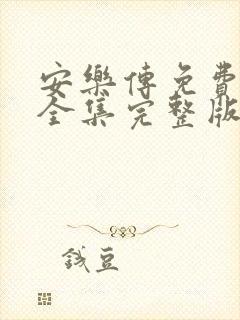 安樂傳免費
全集完整版
錢豆